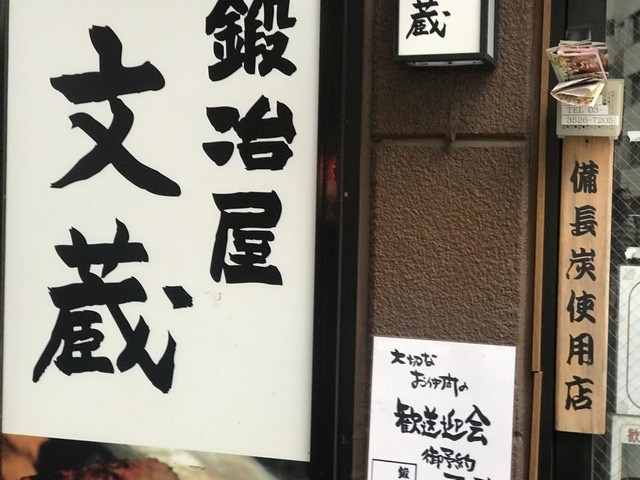 鍛冶屋
文蔵
蔵
大切な
お仲間の
歓送迎会
御予約
鍛
TEL 03-
3526-7205
備長炭使用店
歓